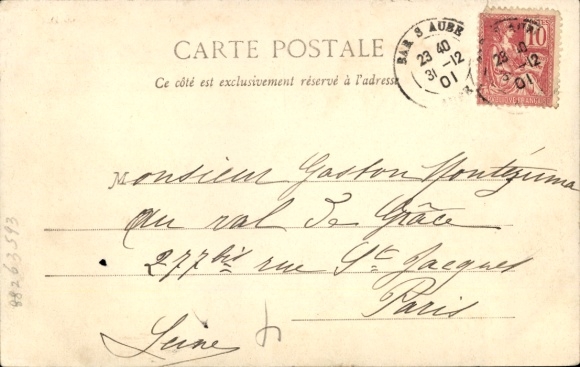 CARTE POSTALE
Ce côté est exclusivement réservé à l'adresse
BAR S AUBE
23 40
31 -12
01
AUBE
10
POSTES
Monsieur Gaston Montézuma
au val de Grâce
277 bis rue St. Jacques
Paris
Seine
88263593